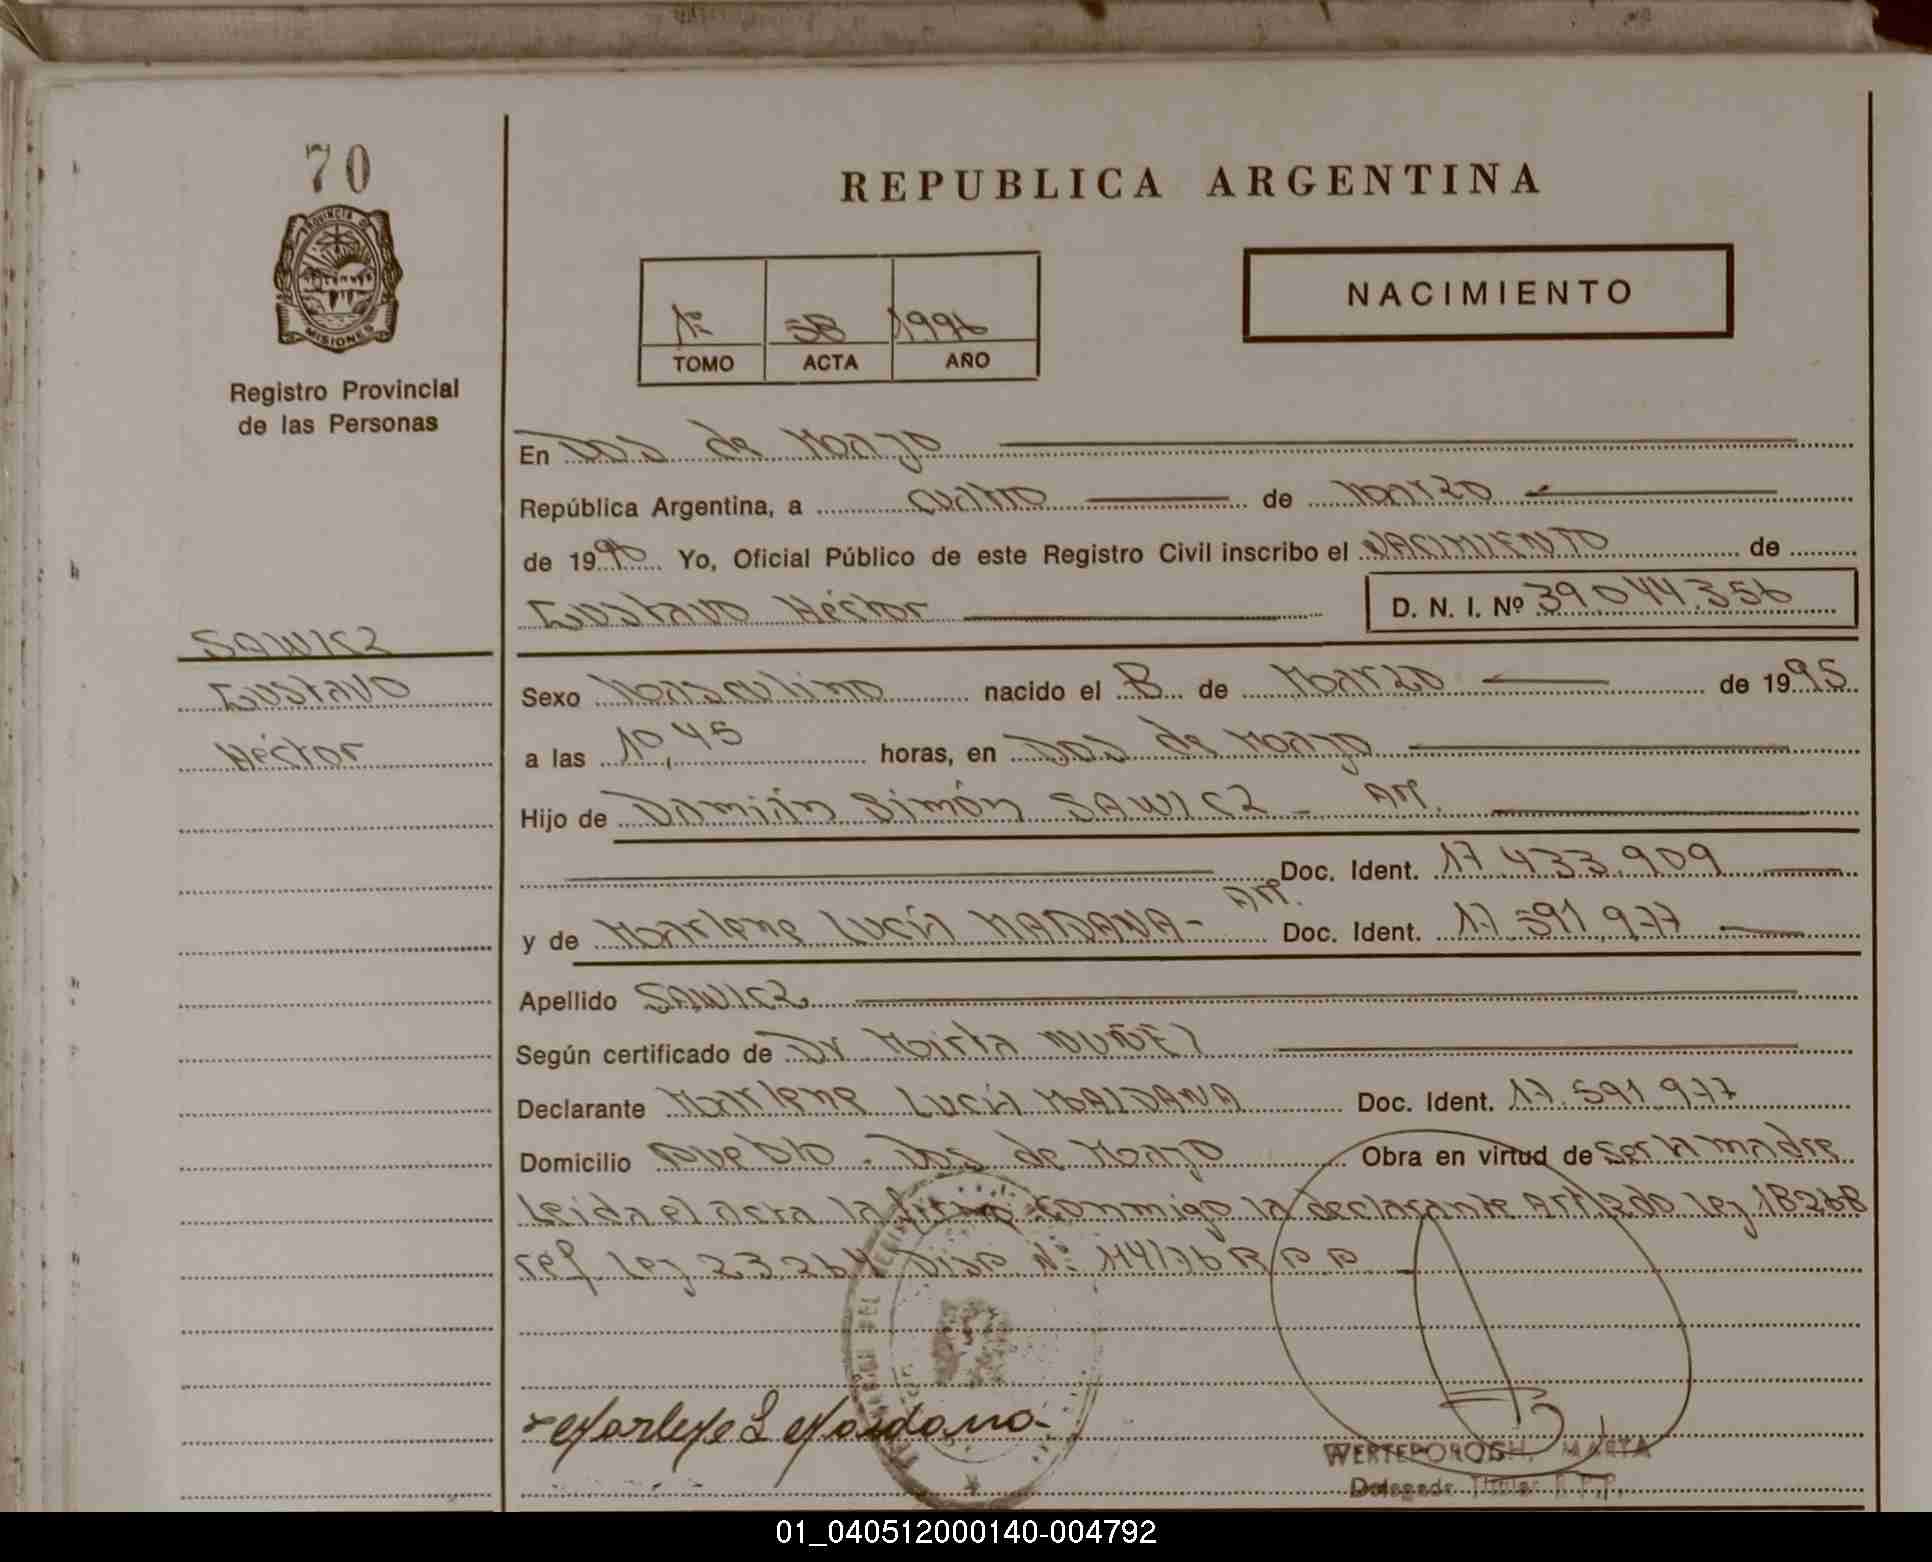 70
PROVINCIA DE
MISIONES
Registro Provincial
de las Personas
REPUBLICA ARGENTINA
1º 58 1996
TOMO ACTA AÑO
NACIMIENTO
En Dos de Mayo
República Argentina, a cuatro de Marzo
de 1996 Yo, Oficial Público de este Registro Civil inscribo el NACIMIENTO de
Gustavo Héctor D. N. I. Nº 39.044.356
SAWICZ
Gustavo
Héctor
Sexo Masculino nacido el 8 de Marzo de 1995
a las 10,45 horas, en Dos de Mayo
Hijo de Damián Simón SAWICZ - Arg.
Doc. Ident. 17.433.909
y de Marlene Lucía MAIDANA - Arg. Doc. Ident. 17.591.977
Apellido SAWICZ
Según certificado de Dr Mirta NUÑEZ
Declarante Marlene Lucía MAIDANA Doc. Ident. 17.591.977
Domicilio Pueblo - Dos de Mayo Obra en virtud de ser la madre
Leida el acta la firma conmigo la declarante Art 2do Ley 18268
ref Ley 23.264 Disp Nº 114/96 R P P
Marlene L Maidana
WERTEPOROGH, MARTA
Delegada Titular R.P.P.
01_040512000140-004792